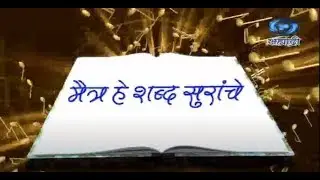 सह्याद्री
मैत्र हे शब्द सुरांचे